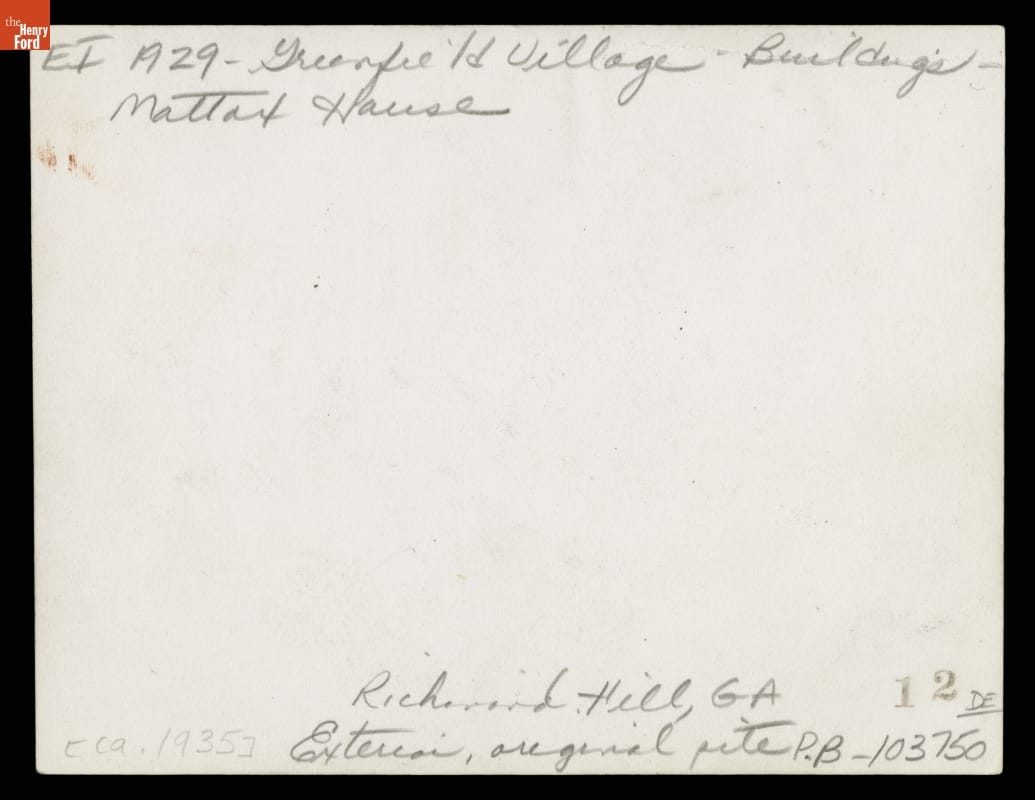 the
Henry
Ford
EI 1929 - Greenfield Village - Buildings -
Mattox House
Richmond Hill, GA
12 DE
[ca. 1935] Exterior, original site P.B-103750